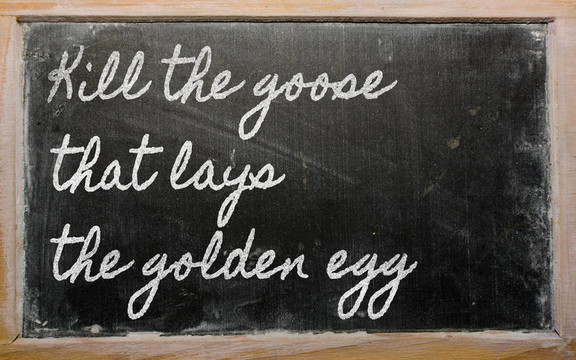 Kill the goose
that lays
the golden egg